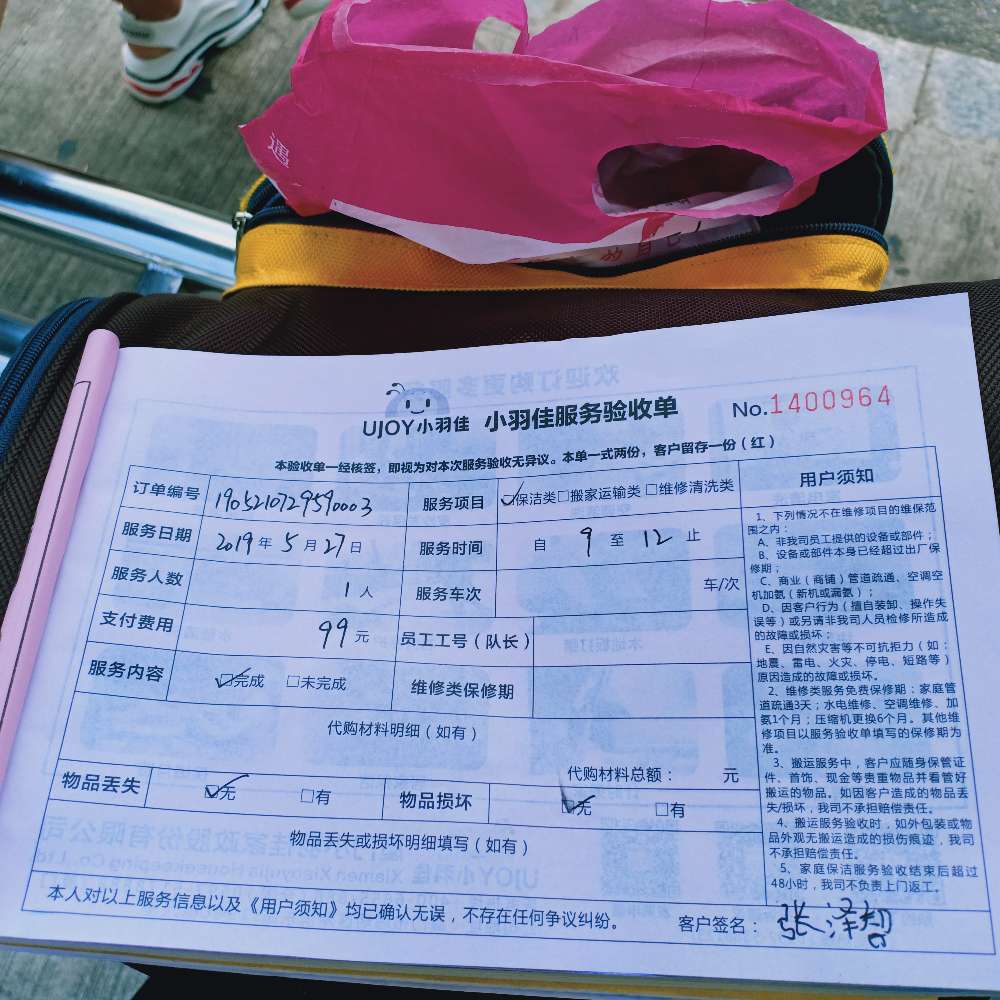 UJOY小羽佳 小羽佳服务验收单 No.1400964
本验收单一经核签，即视为对本次服务验收无异议。本单一式两份，客户留存一份（红）
订单编号 1905210729590003 服务项目 ☑保洁类□搬家运输类□维修清洗类
服务日期 2019年5月27日 服务时间 自 9 至 12 止
服务人数 1人 服务车次 车/次
支付费用 99元 员工工号（队长）
服务内容 ☑完成 □未完成 维修类保修期
代购材料明细（如有）
代购材料总额： 元
物品丢失 ☑无 □有 物品损坏 ☑无 □有
物品丢失或损坏明细填写（如有）
用户须知
1、下列情况不在维修项目的维保范
围之内：
A、非我司员工提供的设备或部件；
B、设备或部件本身已经超过出厂保
修期；
C、商业（商铺）管道疏通、空调空
机加氨（新机或漏氨）；
D、因客户行为（擅自装卸、操作失
误等）或另请非我司人员检修所造成
的故障或损坏；
E、因自然灾害等不可抗拒力（如：
地震、雷电、火灾、停电、短路等）
原因造成的故障或损坏。
2、维修类服务免费保修期：家庭管
道疏通3天；水电维修、空调维修、加
氨1个月；压缩机更换6个月。其他维
修项目以服务验收单填写的保修期为
准。
3、搬运服务中，客户应随身保管证
件、首饰、现金等贵重物品并看管好
搬运的物品。如因客户造成的物品丢
失/损坏，我司不承担赔偿责任。
4、搬运服务验收时，如外包装或物
品外观无搬运造成的损伤痕迹，我司
不承担赔偿责任。
5、家庭保洁服务验收结束后超过
48小时，我司不负责上门返工。
本人对以上服务信息以及《用户须知》均已确认无误，不存在任何争议纠纷。 客户签名：张泽智